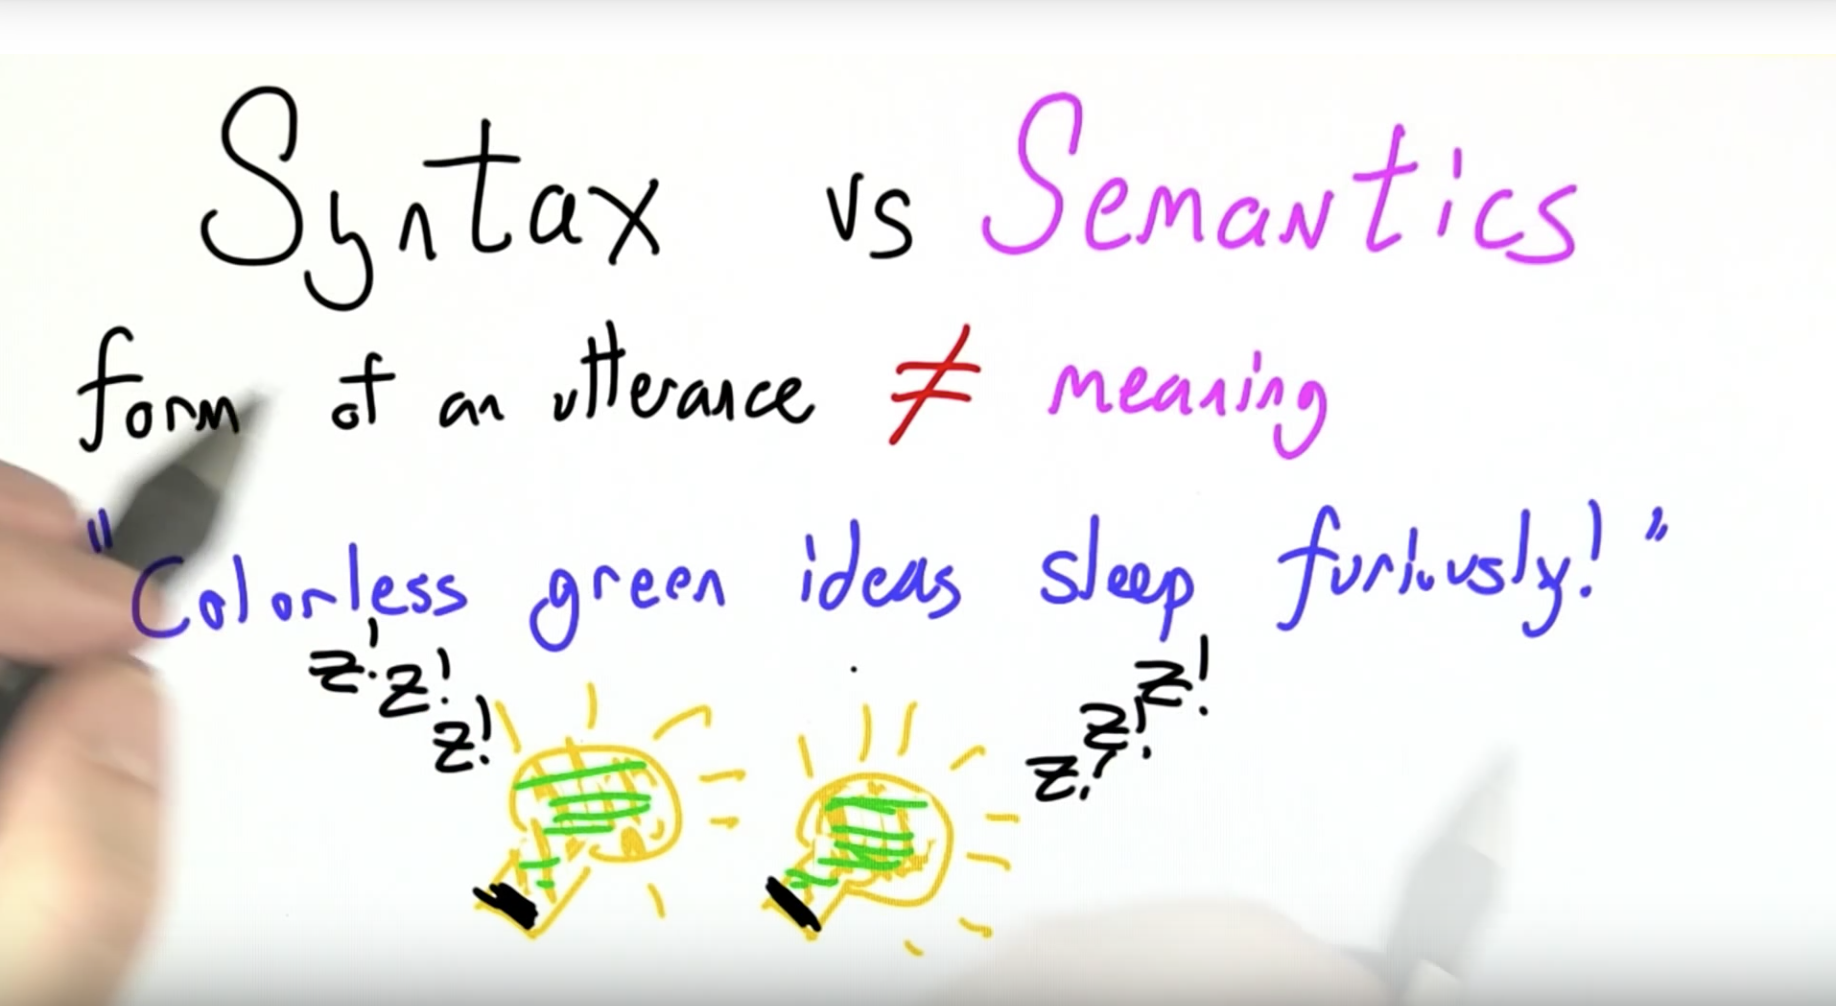 Syntax vs Semantics
form of an utterance ≠ meaning
"Colorless green ideas sleep furiously!"
z! z! z! z! z! z!